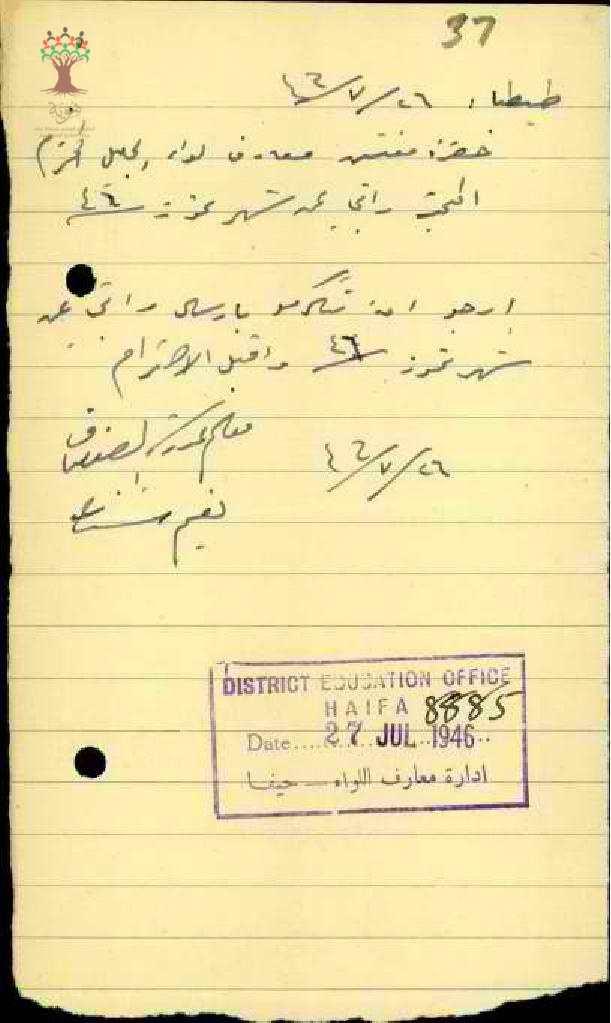 37
٢٦/٧/٤٦
حضرة مفتش معارف لواء الجليل المحترم
راتبي عن شهر تموز سنة ٤٦
ارجو ان تتكرموا بارسال راتبي عن
شهر تموز سنة ٤٦ واقبل الاحترام
٢٦/٧/٤٦
معلم مدرسة
نعيم
DISTRICT EDUCATION OFFICE
HAIFA 8885
Date 27 JUL 1946
ادارة معارف اللواء — حيفا
هوية